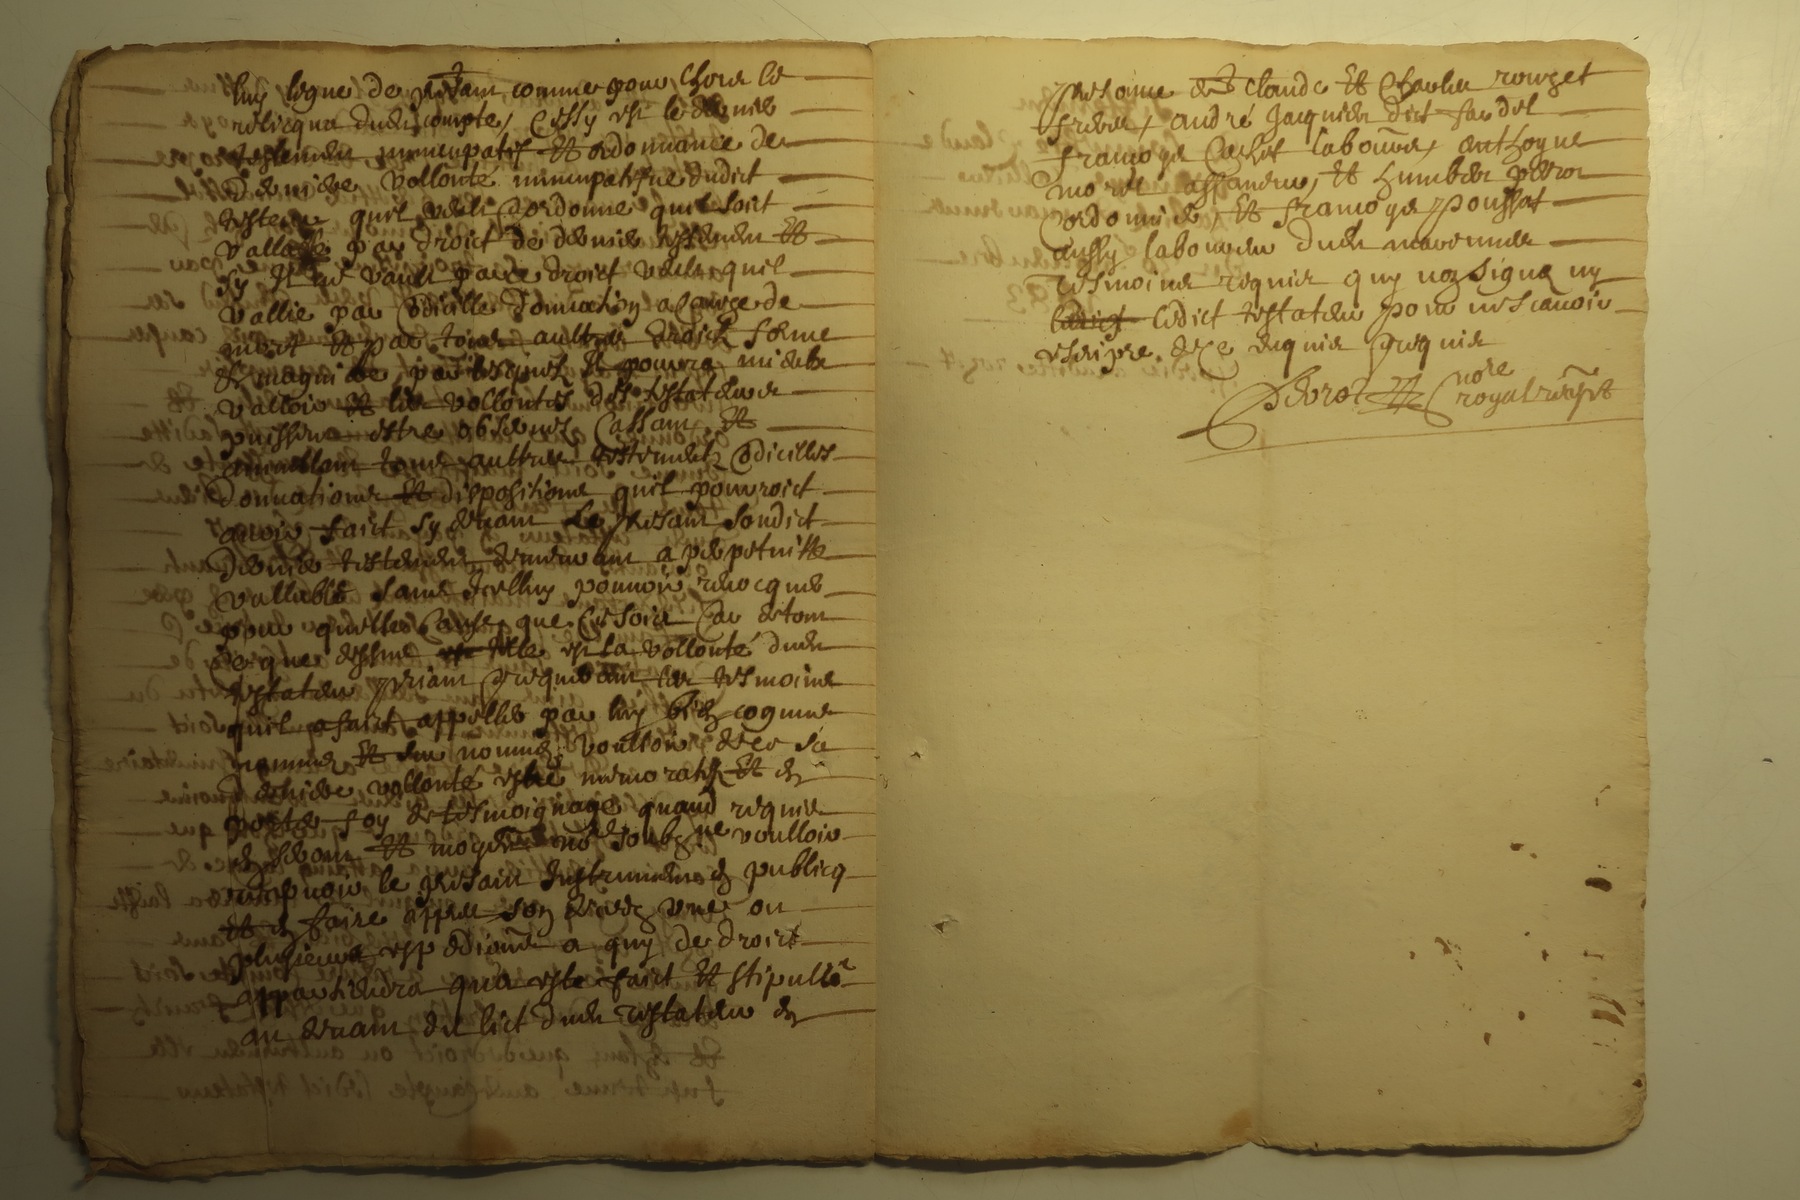 luy legue de present comme pour choze le
relicqua dudict compte, Cessy est le dernier
testement nuncupatif Et ordonnance de
Derniere vollonté nuncupatifve dudict
testateur quil veult & ordonne quil soit
vallable par droict de dernier testement Et
sy Il ne vault par ce droict veult quil
vallie par Codicille donnation a cause de
mort Et par tous aultres droictz forme
Et maniere par lesquelz Il pourra mieulx
valloir Et les vollontés des testateurs
puissent estre observés Cassant Et
annullant tous aultres testementz Codicilles
Donnations Et dispositions quil pourroict
avoir faict sy devant Le present sondict
Dernier testement demeurant a perpetuitte
vallable sans Icelluy pouvoir revocquer
pour quelle Cause que ce soit Car de tout
ce que dessus telle est la vollonté dudict
testateur priant & requerant les tesmoins
quil a faict appeller par luy bien cognus
nommés Et voulloir de sa
Derniere vollonté estre memoratifz Et en
porter foy de tesmoignage quand requis
en seront Et moy dict nore soubzne voulloir
recepvoir le present Instrument en publicq
Et en faire appres son deceds une ou
plusieurs expeditions a quy de droict
appartiendra qua este faict Et stipullé
au devant du lict dudict testateur en
presence de Claude Et Charles rouget
freres, andré Jacquier dict fardel
françoys Cachet laboureur, anthoyne
morel affaneur, Et humbert perron
Cordonnier, Et françoys poussat
aussy laboureur dudict
tesmoins requis quy nont signé ny
ledict testateur pour ne scavoir
escripre de ce enquis & requis
nore
royal